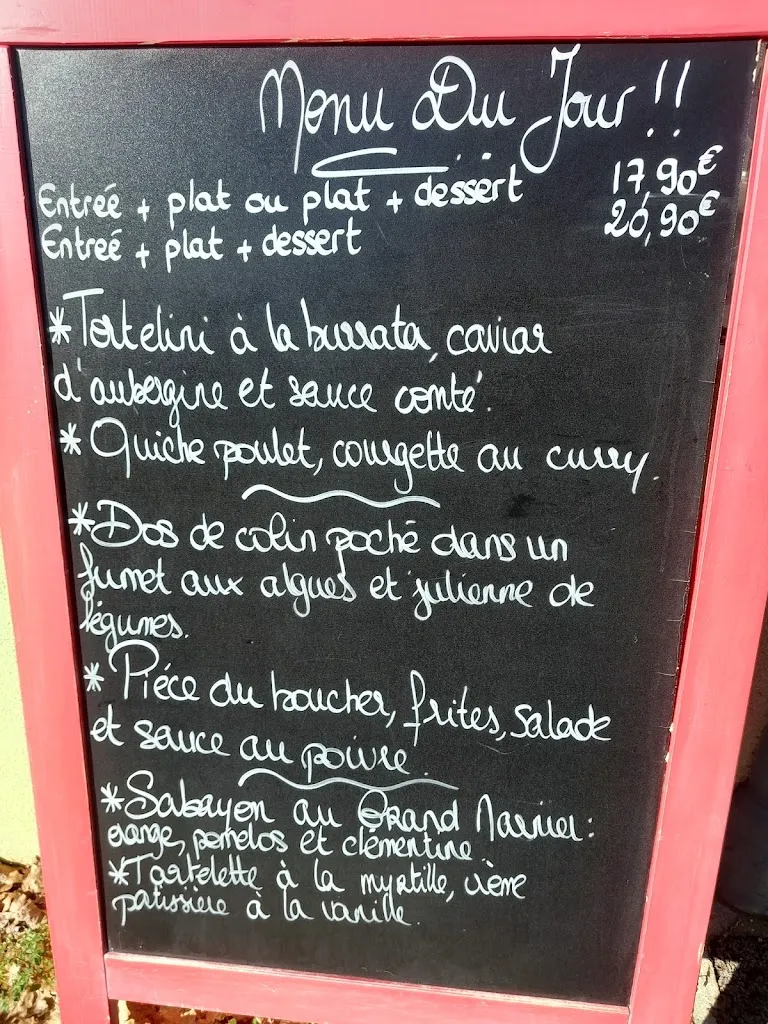 Menu Du Jour !!
Entreé + plat ou plat + dessert 17,90€
Entreé + plat + dessert 20,90€
* Tortelini à la burrata, caviar
d'aubergine et sauce comté.
* Quiche poulet, courgette au curry.
* Dos de colin poché dans un
fumet aux algues et julienne de
légumes.
* Piéce du boucher, frites, salade
et sauce au poivre.
* Sabayon au Grand Marnier :
orange, pomelos et clémentine
* Tartelette à la myrtille, crème
patissière à la vanille.